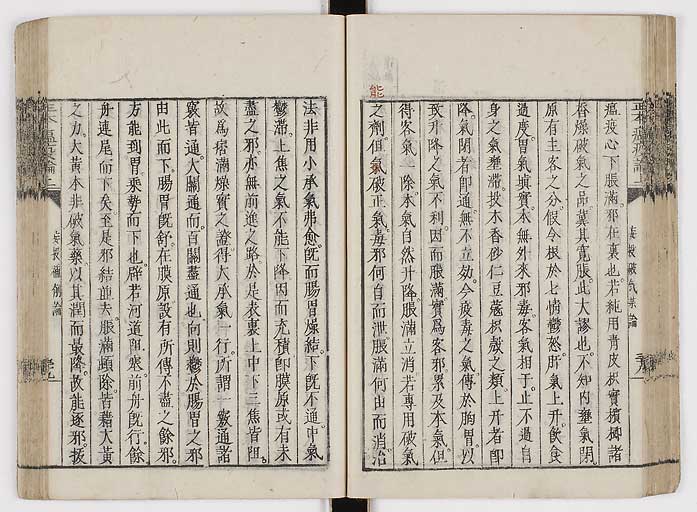 瘟疫心下脹滿。邪在裏也。若純用青皮枳實檳榔諸
香燥破氣之品。冀其寬脹。此大謬也。不知内壅氣閉。
原有主客之分。假令根於七情鬱怒。肝氣上升。飲食
過度。胃氣填實。本無外來邪毒。客氣相干。止不過自
身之氣壅滯。投木香砂仁豆蔻枳殼之類。上升者即
降。氣閉者即通。無不立效。今疫毒之氣傳於胸胃。以
致升降之氣不利。因而脹滿。實爲客邪累及本氣。但
得客氣一除。本氣自然升降。脹滿立消。若專用破氣
之劑。但破正氣。毒邪何自而泄。脹滿何由而消。治
能
法非用小承氣弗愈。既而腸胃燥結。下既不通。中氣
鬱滯。上焦之氣不能下降。因而充積。即膜原或有未
盡之邪。亦無前進之路。於是表裏上中下三焦皆阻。
故爲痞滿燥實之證。得大承氣一行。所謂一竅通。諸
竅皆通。大關通而百關盡通也。向則鬱於腸胃之邪。
由此而下。腸胃既舒。在膜原設有所傳不盡之餘邪。
方能到胃。乘勢而下也。譬若河道阻塞。前舟既行。餘
舟連尾而下矣。至是邪結並去。脹滿頓除。皆藉大黃
之力。大黃本非破氣藥。以其潤而最降。故能逐邪。拔